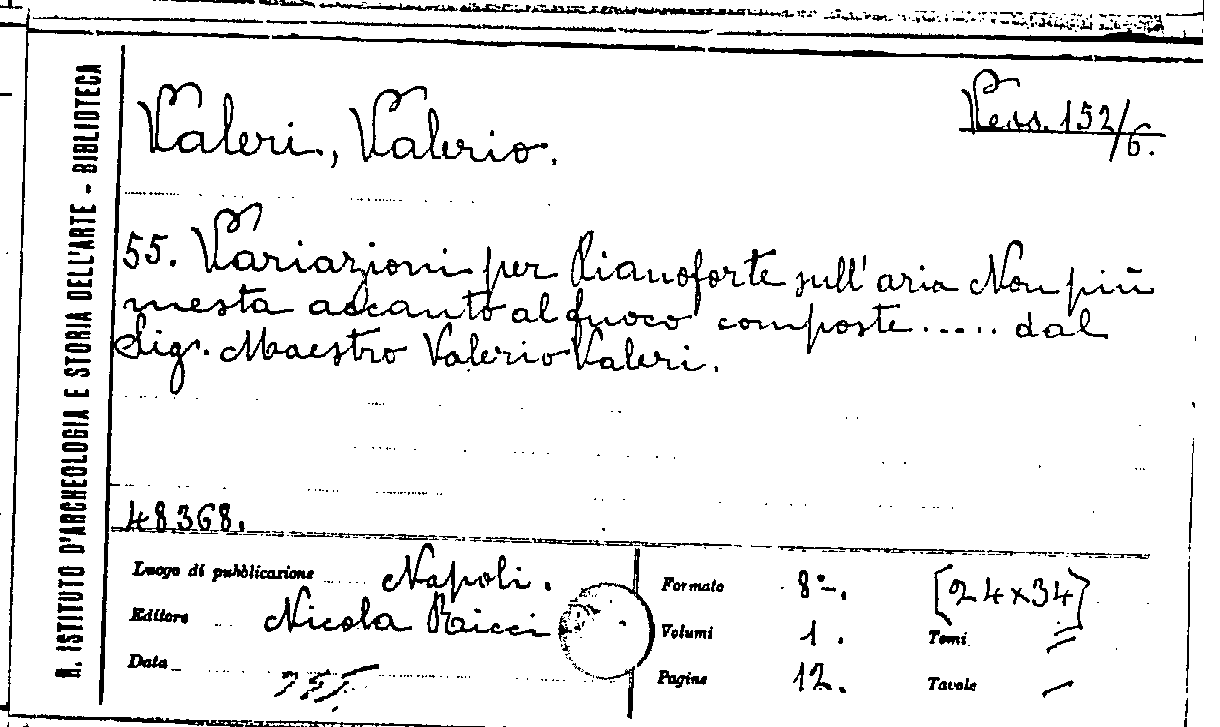 R. ISTITUTO D'ARCHEOLOGIA E STORIA DELL'ARTE - BIBLIOTECA
Valeri, Valerio.
Vess. 152/6.
55. Variazioni per Pianoforte sull'aria Non più
mesta accanto al fuoco composte..... dal
Sig. Maestro Valerio Valeri.
48368.
Luogo di pubblicazione Napoli.
Editore Nicola Ricci
Data
Formato 8º. [24x34]
Volumi 1. Tomi =
Pagine 12. Tavole –